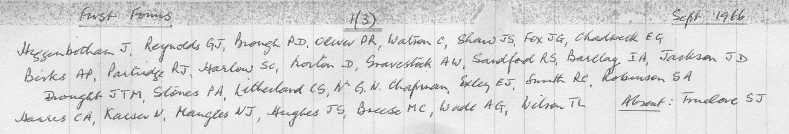 First Forms 1(3) Sept. 1966
Higginbotham J, Reynolds GJ, Brough P.D. Oliver DR, Watson C, Shaw JS, Fox JG, Chadwick EG
Birks AP, Partridge RJ, Harlow SC, Norton D, Gravestock AW, Sandford RS, Barclay IA, Jackson JD
Drought JTM, Stones PA, Litherland CS, Mr G.N. Chapman, Exley EJ, Smith RC, Robinson SA
Harris CA, Kaiser N, Mangles NJ, Hughes JS, Breese MC, Wade AG, Wilson TL Absent: Truelove SJ